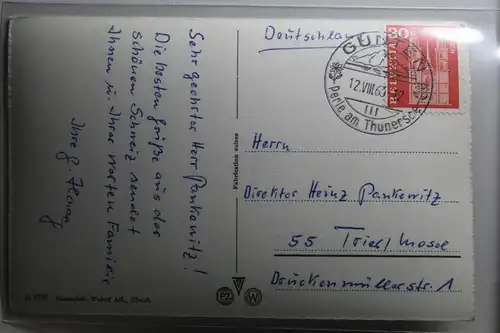 Sehr geehrter Herr Pankewitz!
Die besten Grüße aus der
schönen Schweiz sendet
Ihnen u. Ihrer werten Familie
Ihre G.
Deutschland
HELVETIA
30
12.VIII.63
Perle am Thunersee
Herrn
Direktor Heinz Pankewitz
55 Trier/Mosel
Druckenmüllerstr. 1
Fabrication suisse
PZ
W